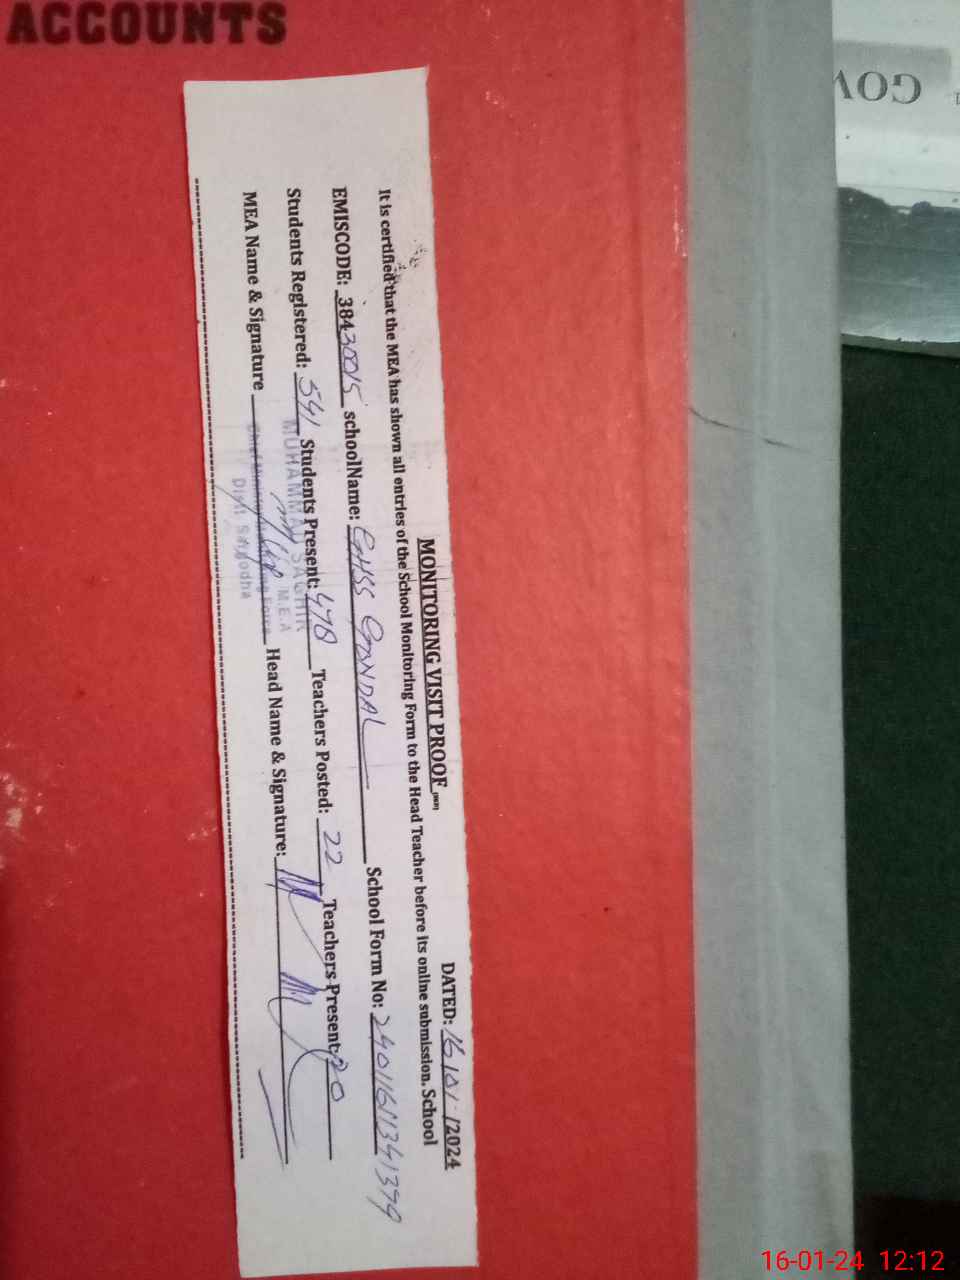 ACCOUNTS
GOV
MONITORING VISIT PROOF
DATED: 16/01/2024
It is certified that the MEA has shown all entries of the School Monitoring Form to the Head Teacher before its online submission. School
EMISCODE: 38430015 schoolName: GHSS GONDAL School Form No:
Students Registered: 541 Students Present: 478 Teachers Posted: 22 Teachers Present: 20
MEA Name & Signature Head Name & Signature:
MUHAMMAD SAGHIR
M.E.A
Distt: Sargodha
16-01-24 12:12